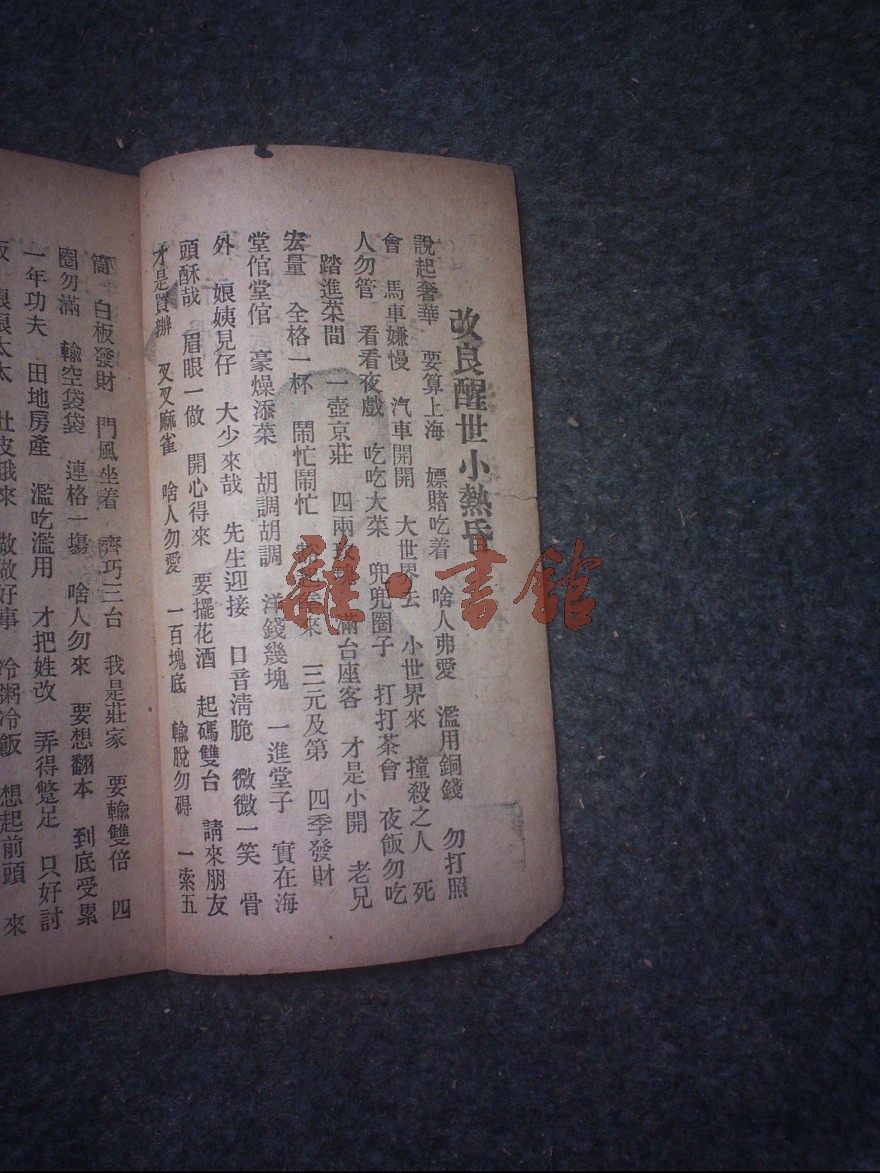 改良醒世小熱昏
說起奢華　要算上海　嫖賭吃着　啥人弗愛　濫用銅錢　勿打照
會　馬車嫌慢　汽車開開　大世界去　小世界來　撞殺之人　死
人勿管　看看夜戲　吃吃大菜　兜兜圈子　打打茶會　夜飯勿吃
踏進菜間　一壺京莊　四兩　滿台座客　才是小開　老兄
宏量　全格一杯　鬧忙鬧忙　來　三元及第　四季發財
堂倌堂倌　豪燥添菜　胡調胡調　洋錢幾塊　一進堂子　實在海
外　娘姨見仔　大少來哉　先生迎接　口音清脆　微微一笑　骨
頭酥哉　眉眼一做　開心得來　要擺花酒　起碼雙台　請來朋友
才是買辦　叉叉麻雀　啥人勿愛　一百塊底　輸脫勿碍　一索五
筒　白板發財　門風坐着　齊巧三台　我是莊家　要輸雙倍　四
圈勿滿　輸空袋袋　連格一塲　啥人勿來　要想翻本　到底受累
一年功夫　田地房產　濫吃濫用　才把姓改　弄得蹩足　只好討
飯　太太　肚皮餓來　做做好事　冷粥冷飯　想起前頭　來
雜·書館